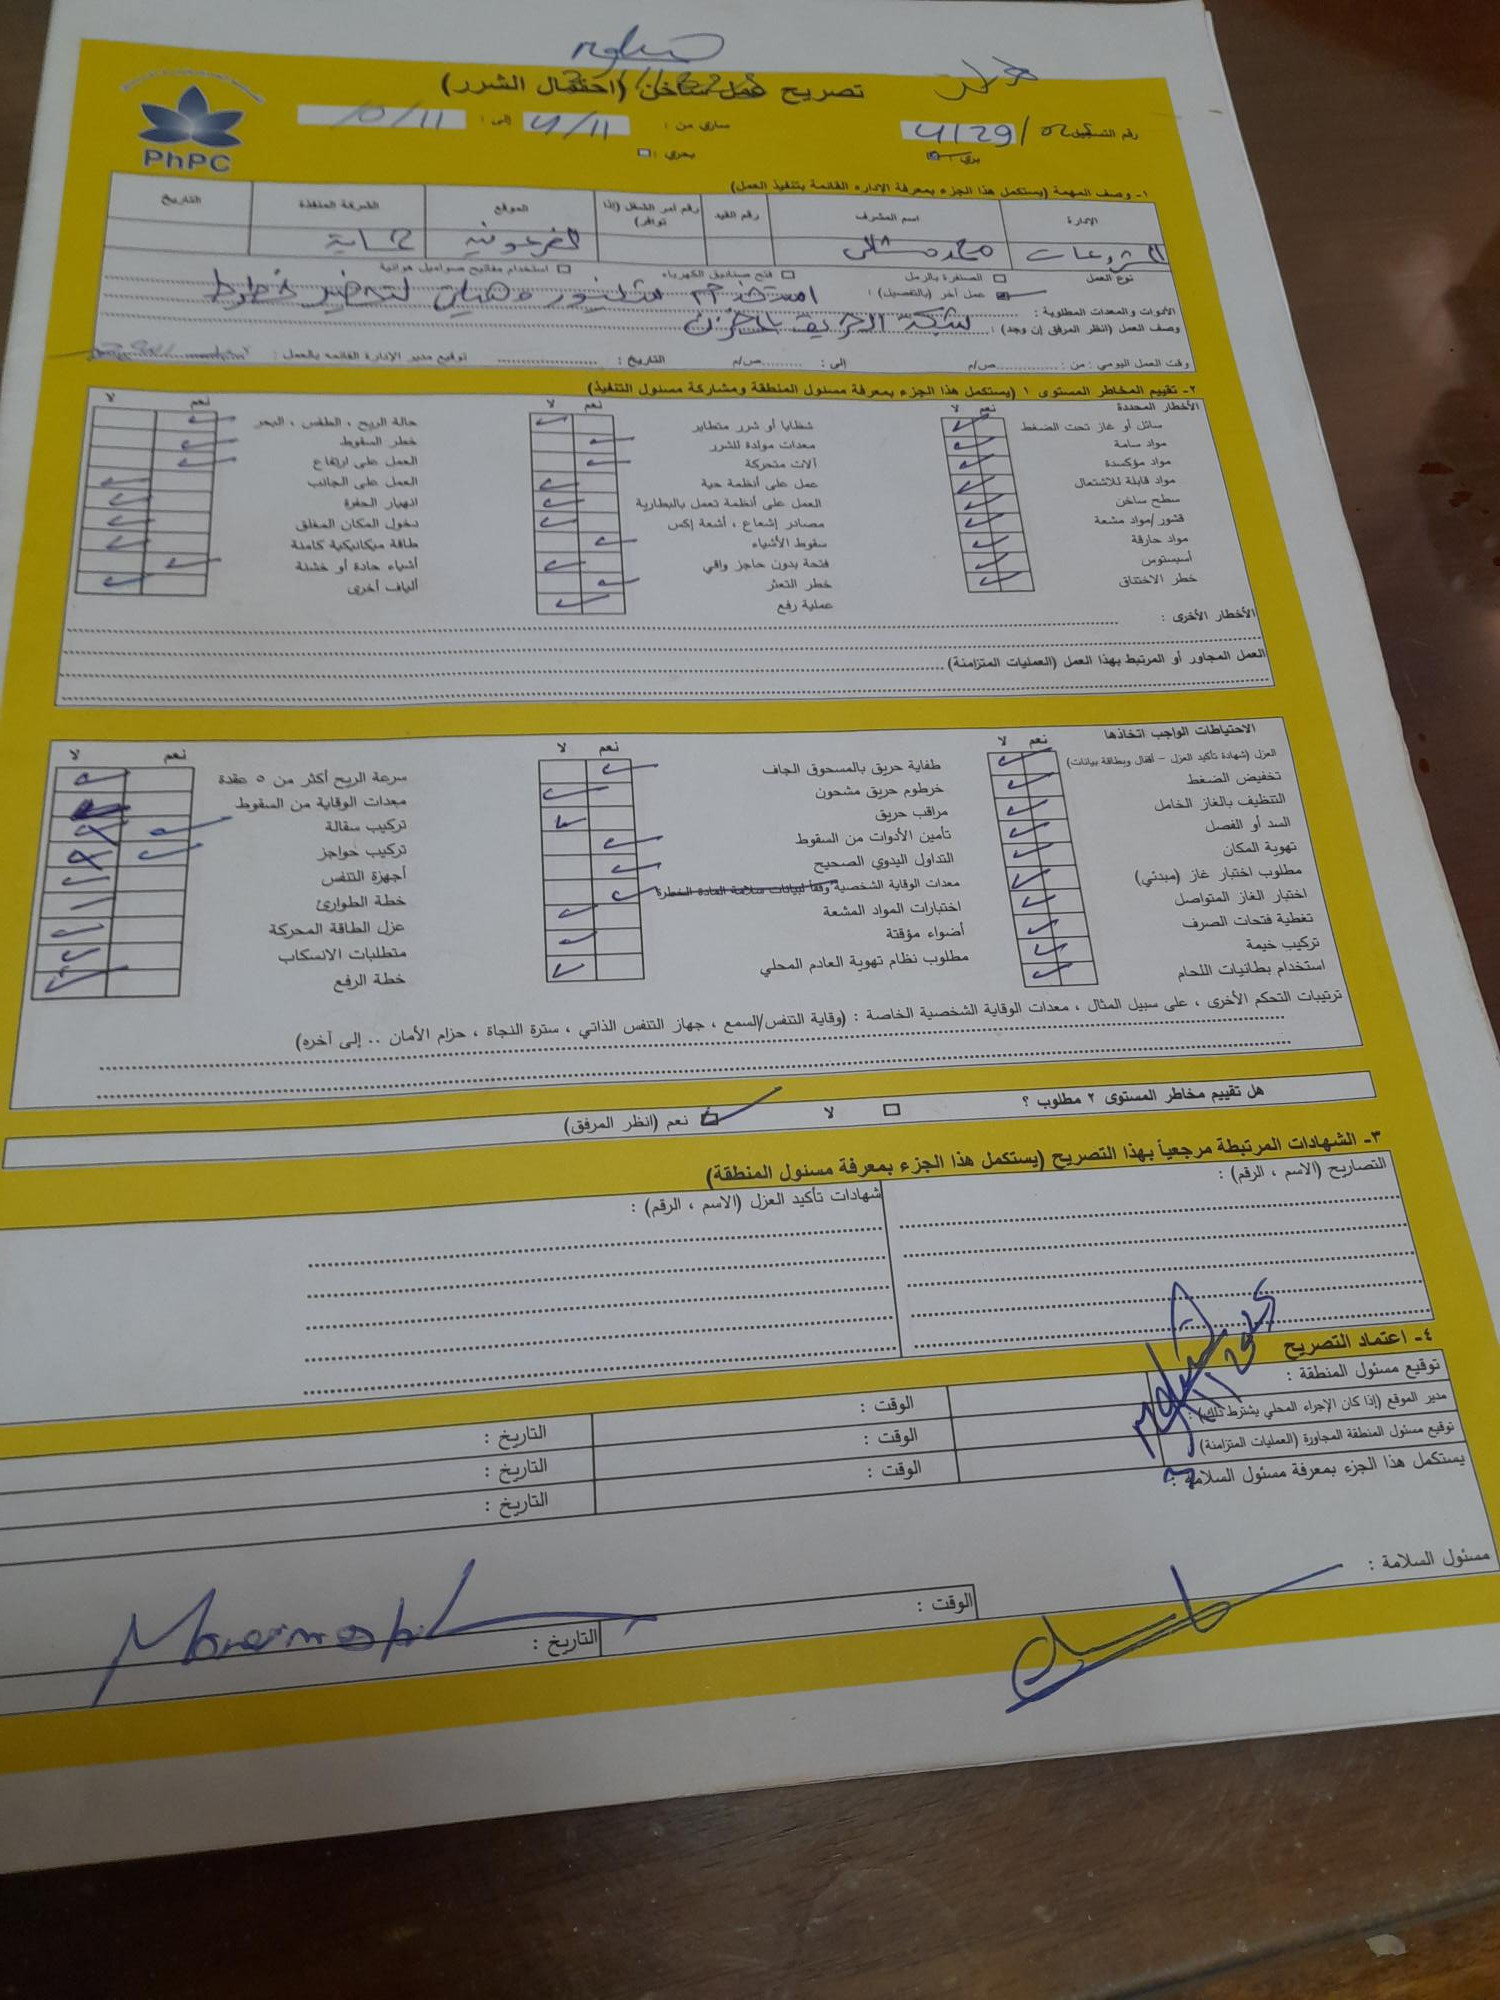 تصريح عمل ساخن (احتمال الشرر)
PhPC
رقم التسجيل
ساري من : 4/11 إلى : 10/11
بري : بحري :
١- وصف المهمة (يستكمل هذا الجزء بمعرفة الإداره القائمة بتنفيذ العمل)
الإدارة اسم المشرف رقم القيد رقم امر الشغل (إذا توافر) الموقع الشركة المنفذة التاريخ
المشروعات محمد مشالى الفرعونية حماية
نوع العمل الصنفرة بالرمل فتح صناديق الكهرباء استخدام مفاتيح صواميل هوائية
عمل آخر (بالتفصيل) : استخدام شنيور وهيلتي لتحضير خطوط
الأدوات والمعدات المطلوبة :
وصف العمل (انظر المرفق إن وجد) : شبكة الحريق بالمخزن
وقت العمل اليومي : من : ص/م إلى : ص/م التاريخ : توقيع مدير الإدارة القائمه بالعمل :
٢- تقييم المخاطر المستوى ١ (يستكمل هذا الجزء بمعرفة مسئول المنطقة ومشاركة مسئول التنفيذ)
الأخطار المحددة نعم لا نعم لا نعم لا
سائل أو غاز تحت الضغط شظايا أو شرر متطاير حالة الريح ، الطقس ، البحر
مواد سامة معدات مولدة للشرر خطر السقوط
مواد مؤكسدة آلات متحركة العمل على ارتفاع
مواد قابلة للاشتعال عمل على أنظمة حية العمل على الجانب
سطح ساخن العمل على أنظمة تعمل بالبطارية انهيار الحفرة
قشور/مواد مشعة مصادر إشعاع ، أشعة إكس دخول المكان المغلق
مواد حارقة سقوط الأشياء طاقة ميكانيكية كامنة
أسبستوس فتحة بدون حاجز واقي أشياء حادة أو خشنة
خطر الاختناق خطر التعثر ألياف أخرى
عملية رفع
الأخطار الأخرى :
العمل المجاور أو المرتبط بهذا العمل (العمليات المتزامنة)
الاحتياطات الواجب اتخاذها نعم لا نعم لا نعم لا
العزل (شهادة تأكيد العزل – أقفال وبطاقة بيانات) طفاية حريق بالمسحوق الجاف سرعة الريح أكثر من ٥ عقدة
تخفيض الضغط خرطوم حريق مشحون معدات الوقاية من السقوط
التنظيف بالغاز الخامل مراقب حريق تركيب سقالة
السد أو الفصل تأمين الأدوات من السقوط تركيب حواجز
تهوية المكان التداول اليدوي الصحيح أجهزة التنفس
مطلوب اختبار غاز (مبدئي) معدات الوقاية الشخصية وفقاً لبيانات سلامة المادة الخطرة خطة الطوارئ
اختبار الغاز المتواصل اختبارات المواد المشعة عزل الطاقة المحركة
تغطية فتحات الصرف أضواء مؤقتة متطلبات الانسكاب
تركيب خيمة مطلوب نظام تهوية العادم المحلي خطة الرفع
استخدام بطانيات اللحام
ترتيبات التحكم الأخرى ، على سبيل المثال ، معدات الوقاية الشخصية الخاصة : (وقاية التنفس/السمع ، جهاز التنفس الذاتي ، سترة النجاة ، حزام الأمان .. إلى آخره)
هل تقييم مخاطر المستوى ٢ مطلوب ؟ لا نعم (انظر المرفق)
٣- الشهادات المرتبطة مرجعياً بهذا التصريح (يستكمل هذا الجزء بمعرفة مسئول المنطقة)
التصاريح (الاسم ، الرقم) : شهادات تأكيد العزل (الاسم ، الرقم) :
٤- اعتماد التصريح
توقيع مسئول المنطقة : الوقت : التاريخ :
مدير الموقع (إذا كان الإجراء المحلي يشترط ذلك) : الوقت : التاريخ :
توقيع مسئول المنطقة المجاورة (العمليات المتزامنة) الوقت : التاريخ :
يستكمل هذا الجزء بمعرفة مسئول السلامة :
مسئول السلامة : الوقت : التاريخ :